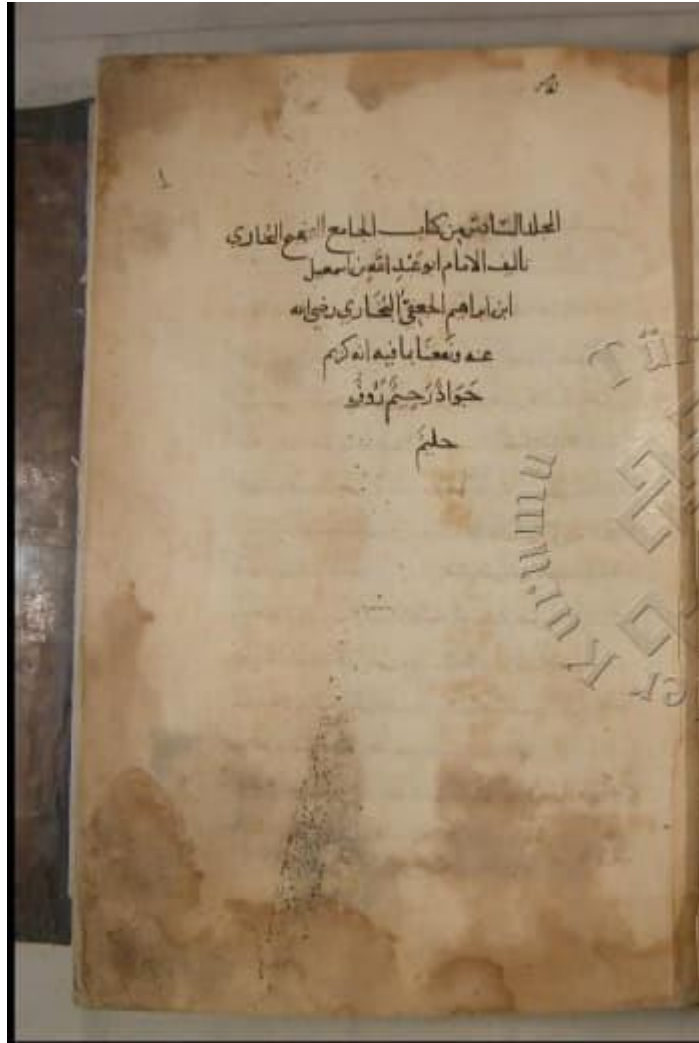 المجلد السادس من كتاب الجامع الصحيح البخاري
تاليف الامام ابو عَبْد الله بن اسمعيل
ابن ابراهيم الجعفيّ البُخَاري رضي الله
عنه ونفعنَا بما فيه انه كريم
جَوَادٌ رَحِيمٌ رَؤُفٌ
حليمٌ
١